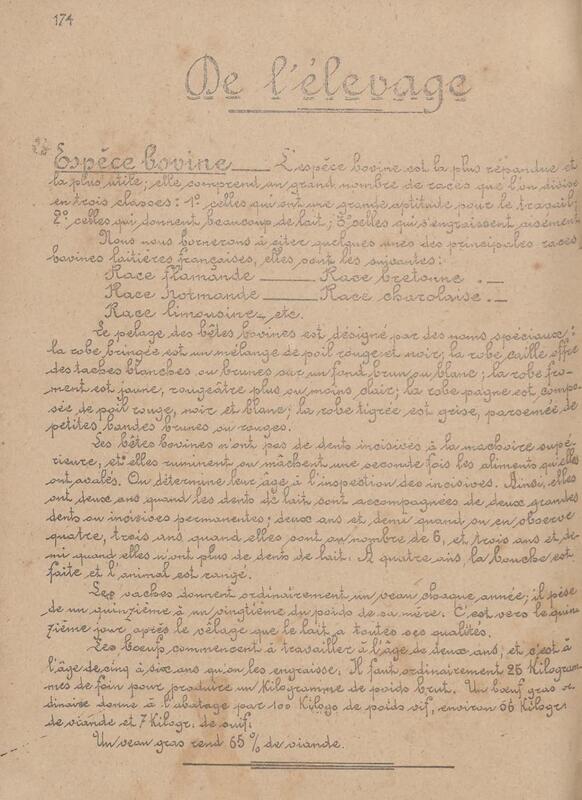 174
De l'élevage
Espèce bovine ___ L'espèce bovine est la plus répandue et
la plus utile; elle comprend un grand nombre de races que l'on divise
en trois classes: 1º celles qui ont une grande aptitude pour le travail;
2º celles qui donnent beaucoup de lait; 3º celles qui s'engraissent aisément
Nous nous bornerons à citer quelques unes des principales races
bovines laitières françaises, elles sont les suivantes:
Race flamande ___ Race bretonne . _
Race normande ___ Race charolaise . _
Race limousine _ etc.
Le pelage des bêtes bovines est désigné par des noms spéciaux:
la robe bringée est un mélange de poil rouge et noir; la robe caille offre
des taches blanches ou brunes sur un fond brun ou blanc; la robe fro-
ment est jaune, rougeâtre plus ou moins clair; la robe pagne est compo-
sée de poil rouge, noir et blanc; la robe tigrée est grise, parsemée de
petites bandes brunes ou rouges.
Les bêtes bovines n'ont pas de dents incisives à la machoire supé-
rieure, et elles ruminent ou mâchent une seconde fois les aliments qu'elles
ont avalés. On détermine leur âge à l'inspection des incisives. Ainsi, elles
ont deux ans quand les dents de lait sont accompagnées de deux grandes
dents ou incisives permanentes; deux ans et demi quand on en observe
quatre, trois ans quand elles sont au nombre de 6, et trois ans et de-
mi quand elles n'ont plus de dents de lait. A quatre ans la bouche est
faite et l'animal est rangé.
Les vaches donnent ordinairement un veau chaque année; il pèse
de un quinzième à un vingtième du poids de sa mère. C'est vers le quin-
zième jour après le vêlage que le lait a toutes ses qualités.
Les bœufs commencent à travailler à l'âge de deux ans, et c'est à
l'âge de cinq à six ans qu'on les engraisse. Il faut ordinairement 25 Kilogram-
mes de foin pour produire un kilogramme de poids brut. Un bœuf gras or-
dinaire donne à l'abatage par 100 Kilogs de poids vif, environ 56 Kilogr.
de viande et 7 Kilogr. de suif.
Un veau gras rend 65 % de viande.